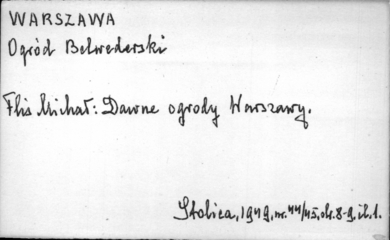 WARSZAWA
Ogród Belwederski
Flis Michał: Dawne ogrody Warszawy.
Stolica, 1949, nr. 44/45, str. 8-9, il. 1.